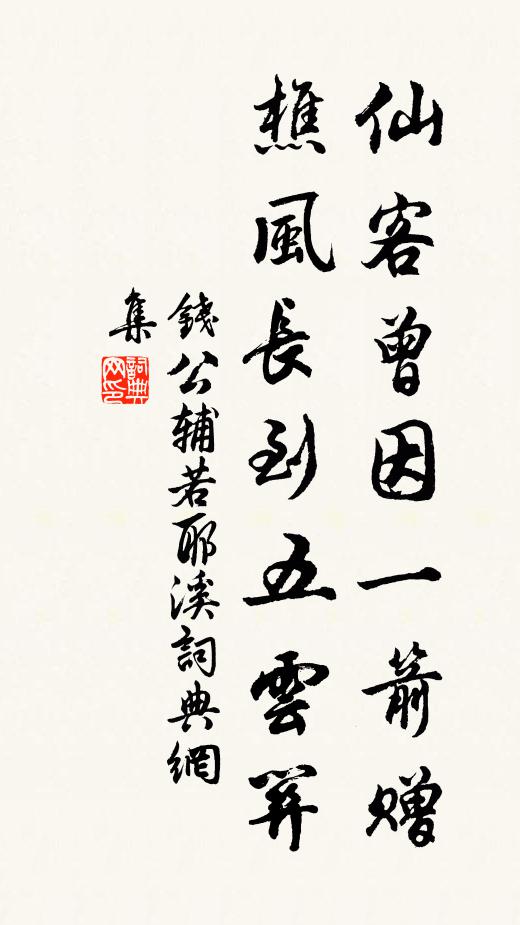 仙客曾因一箭贈
樵風長到五雲開
錢公輔若耶溪詞典網
集
詞典
网印